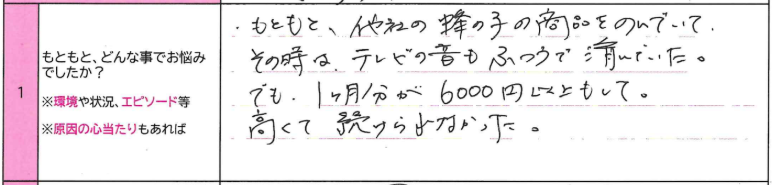 1
もともと、どんな事でお悩み
でしたか?
※環境や状況、エピソード等
※原因の心当たりもあれば
・もともと、他社の蜂の子の商品をのんでいて、
その時は、テレビの音もふつうで済んでいた。
でも、1ヶ月分が6000円以上もして。
高くて続けられなかった。